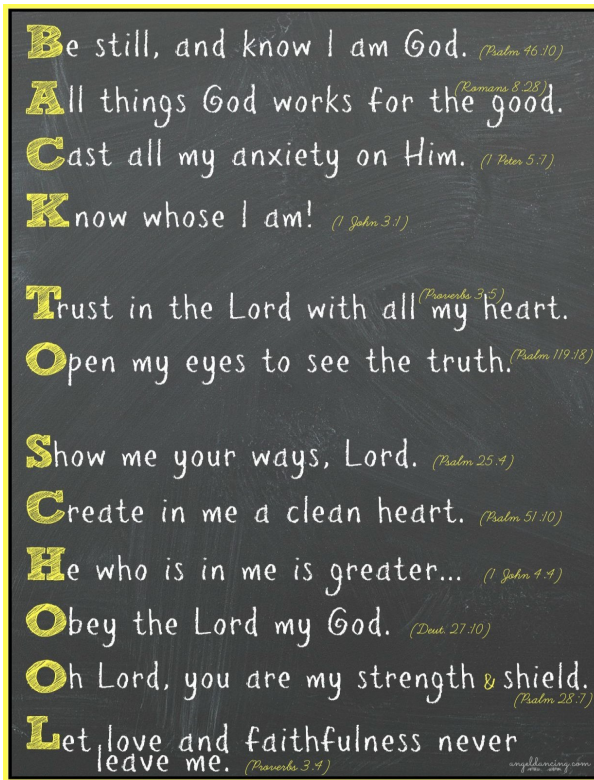 Be still, and know I am God. (Psalm 46:10)
All things God works for the good. (Romans 8:28)
Cast all my anxiety on Him. (1 Peter 5:7)
Know whose I am! (1 John 3:1)
Trust in the Lord with all my heart. (Proverbs 3:5)
Open my eyes to see the truth. (Psalm 119:18)
Show me your ways, Lord. (Psalm 25:4)
Create in me a clean heart. (Psalm 51:10)
He who is in me is greater... (1 John 4:4)
Obey the Lord my God. (Deut. 27:10)
Oh Lord, you are my strength & shield.
(Psalm 28:7)
Let love and faithfulness never
leave me. (Proverbs 3:4)
angeldancing.com